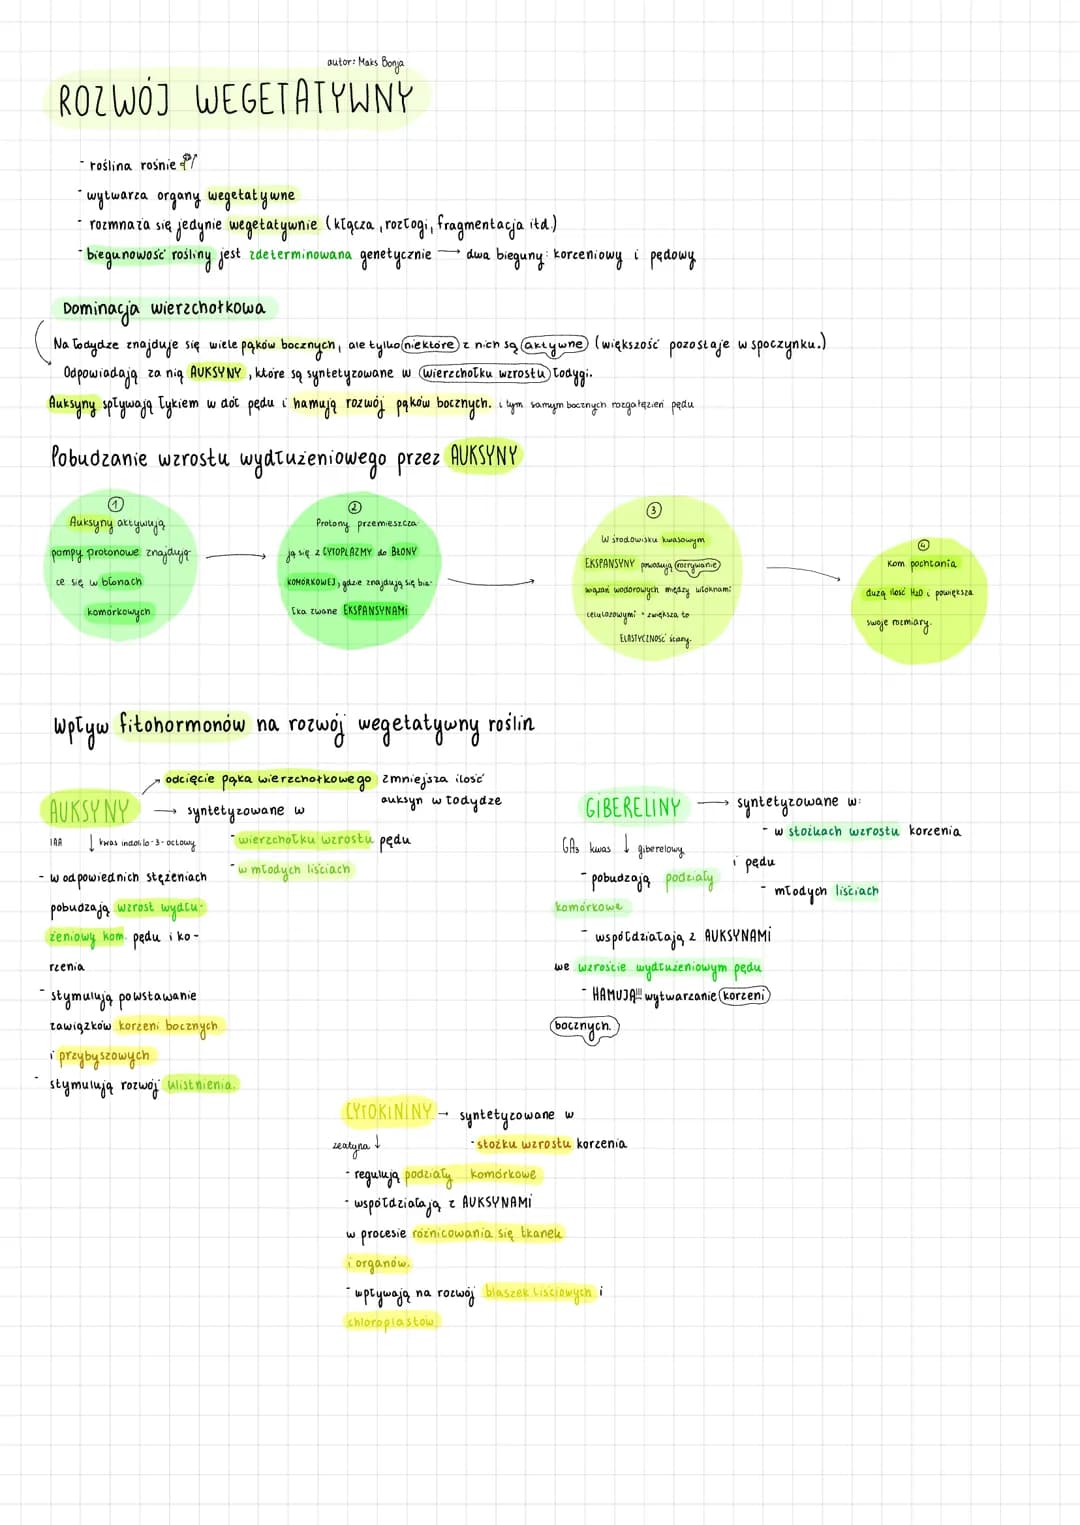 autor: Maks Bonja
ROZWÓJ WEGETATYWNY
- roślina rośnie
- wytwarza organy wegetatywne
- rozmnaża się jedynie wegetatywnie (kłącza, rozłogi, fragmentacja itd.)
- biegunowość rośliny jest zdeterminowana genetycznie → dwa bieguny: korzeniowy i pędowy
Dominacja wierzchołkowa
Na łodydze znajduje się wiele pąków bocznych, ale tylko niektóre z nich są aktywne (większość pozostaje w spoczynku.)
Odpowiadają za nią AUKSYNY, które są syntetyzowane w wierzchołku wzrostu łodygi.
Auksyny spływają łykiem w dół pędu i hamują rozwój pąków bocznych. i tym samym bocznych rozgałęzień pędu
Pobudzanie wzrostu wydłużeniowego przez AUKSYNY
1
Auksyny aktywują
pompy protonowe znajdują-
ce się w błonach
komórkowych
2
Protony przemieszcza-
ją się z CYTOPLAZMY do BŁONY
KOMÓRKOWEJ, gdzie znajdują się bia-
łka zwane EKSPANSYNAMI
3
W środowisku kwasowym
EKSPANSYNY powodują rozrywanie
wiązań wodorowych między włóknami
celulozowymi + zwiększa to
ELASTYCZNOŚĆ ściany.
4
Kom pochłania
dużą ilość H2O i powiększa
swoje rozmiary.
Wpływ fitohormonów na rozwój wegetatywny roślin
→ odcięcie pąka wierzchołkowego zmniejsza ilość
auksyn w łodydze
AUKSYNY → syntetyzowane w
- wierzchołku wzrostu pędu
- w młodych liściach
IAA ↓ kwas indolilo-3-octowy
- w odpowiednich stężeniach
pobudzają wzrost wydłu-
żeniowy kom. pędu i ko-
rzenia
- stymulują powstawanie
zawiązków korzeni bocznych
i przybyszowych
- stymulują rozwój ulistnienia.
GIBERELINY → syntetyzowane w:
- w stożkach wzrostu korzenia
i pędu
- młodych liściach
GA3 kwas ↓ giberelowy
- pobudzają podziały
komórkowe
- współdziałają z AUKSYNAMI
we wzroście wydłużeniowym pędu
- HAMUJĄ!!! wytwarzanie korzeni
bocznych.
CYTOKININY → syntetyzowane w
- stożku wzrostu korzenia
zeatyna ↓
- regulują podziały komórkowe
- współdziałają z AUKSYNAMI
w procesie różnicowania się tkanek
i organów.
- wpływają na rozwój blaszek liściowych i
chloroplastów.